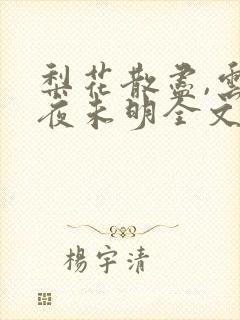 梨花散盡,雲
夜未明全文
楊宇清